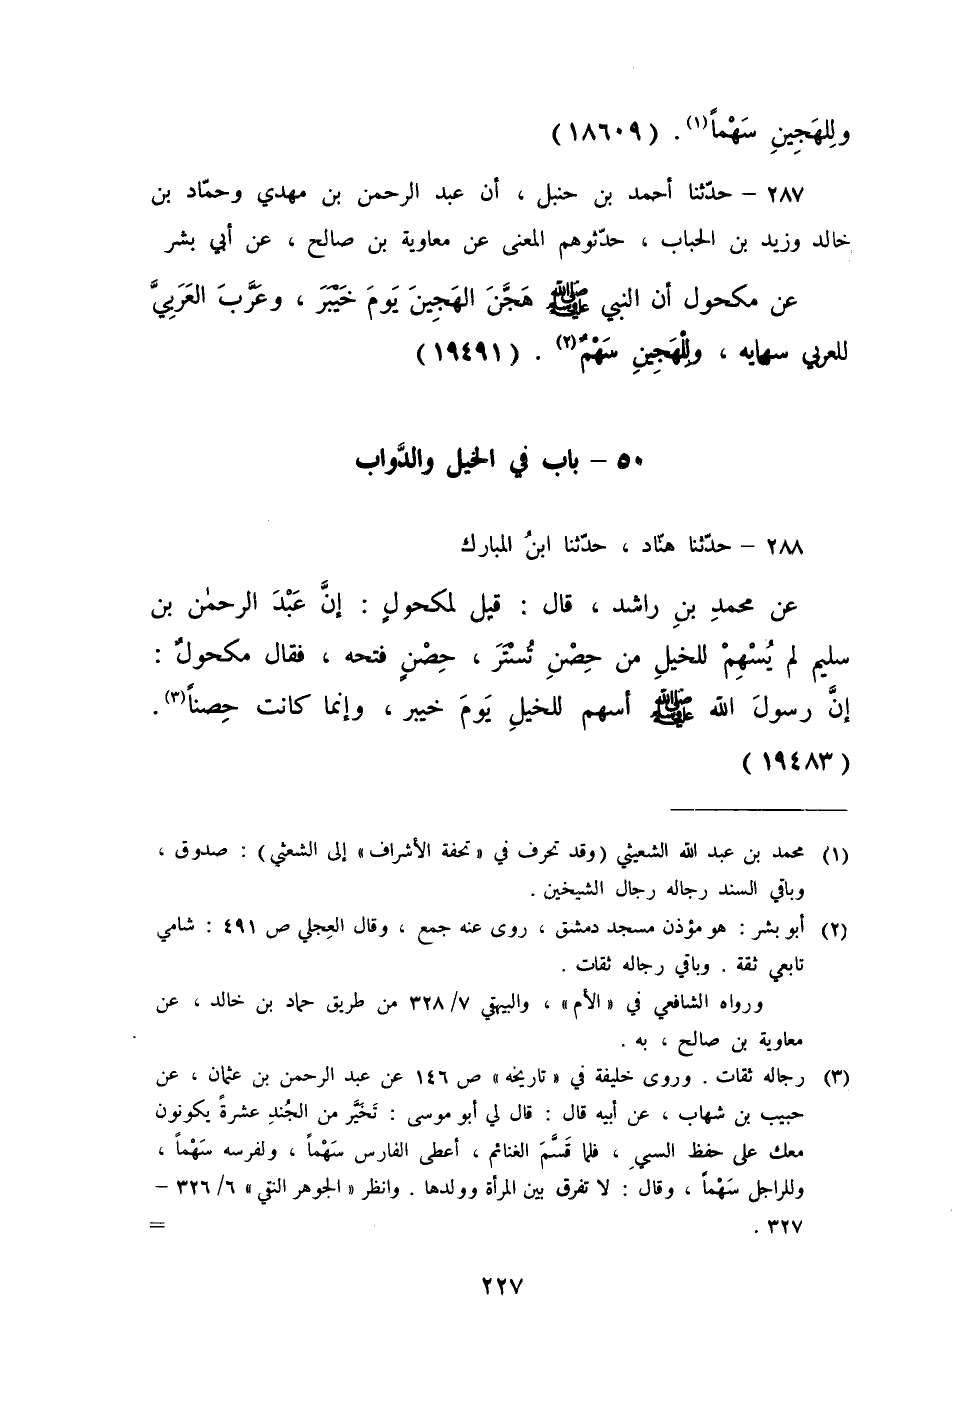 ولِلهَجِينِ سَهْماً(١) . (١٨٦٠٩)
٢٨٧ – حدّثنا أحمد بن حنبل ، أن عبد الرحمن بن مهدي وحمّاد بن
خالد وزيد بن الحباب ، حدّثوهم المعنى عن معاوية بن صالح ، عن أبي بشر
عن مكحول أن النبي ﷺ هَجَّنَ الهَجِينَ يَومَ خَيْبَرَ ، وعَرَّبَ العَرَبِيَّ
للعربي سهمايه ، ولِلْهَجِينِ سَهْمٌ(٢) . (١٩٤٩١)
٥٠ – باب في الخيل والدَّواب
٢٨٨ – حدّثنا هنّاد ، حدّثنا ابنُ المبارك
عن محمدِ بنِ راشد ، قال : قيل لمكحولٍ : إنَّ عَبْدَ الرحمٰن بن
سليم لم يُسْهِمْ للخيلِ من حِصْنِ تُسْتَرَ ، حِصْنٍ فتحه ، فقال مكحولٌ :
إنَّ رسولَ الله ﷺ أسهم للخيلِ يَومَ خيبر ، وإنما كانت حِصناً(٣) .
(١٩٤٨٣)
(١) محمد بن عبد الله الشعيثي (وقد تحرف في «تحفة الأشراف» إلى الشعثي) : صدوق ،
وباقي السند رجاله رجال الشيخين .
(٢) أبو بشر : هو مؤذن مسجد دمشق ، روى عنه جمع ، وقال العِجلي ص ٤٩١ : شامي
تابعي ثقة . وباقي رجاله ثقات .
ورواه الشافعي في «الأم» ، والبيهقي ٧/ ٣٢٨ من طريق حماد بن خالد ، عن
معاوية بن صالح ، به .
(٣) رجاله ثقات . وروى خليفة في «تاريخه» ص ١٤٦ عن عبد الرحمن بن عثمان ، عن
حبيب بن شهاب ، عن أبيه قال : قال لي أبو موسى : تَخَيَّر من الجُندِ عشرةً يكونون
معك على حفظ السبيِ ، فلما قَسَّمَ الغنائم ، أعطى الفارس سَهْماً ، ولفرسه سَهْماً ،
وللراجل سَهْماً ، وقال : لا تفرق بين المرأة وولدها . وانظر «الجوهر النقي» ٦/ ٣٢٦ –
٣٢٧ . =
٢٢٧